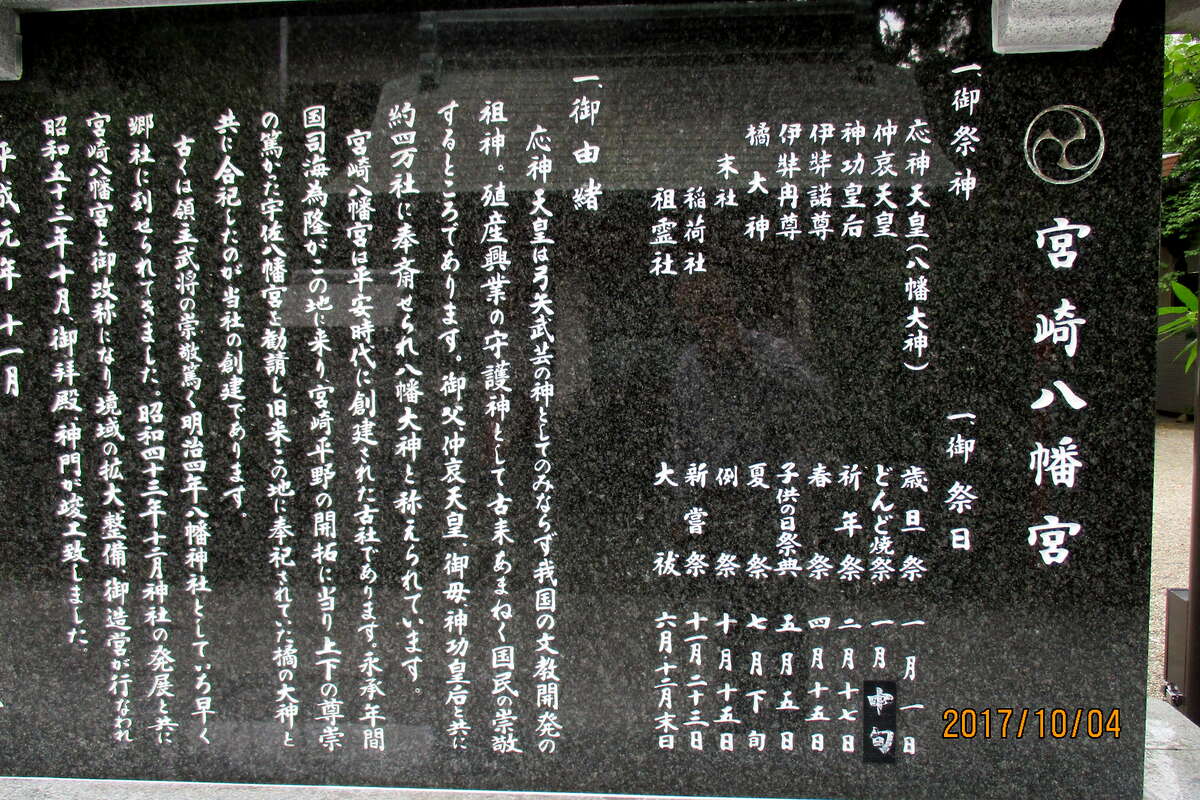 宮崎八幡宮
一、御祭神
応神天皇(八幡大神)
仲哀天皇
神功皇后
伊弉諾尊
伊弉冉尊
橘大神
末社
稲荷社
祖霊社
一、御祭日
歳旦祭 一月一日
どんど焼祭 一月中旬
祈年祭 二月十七日
春祭 四月十五日
子供の日祭典 五月五日
夏祭 七月下旬
例祭 十月十五日
新嘗祭 十一月二十三日
大祓 六月十二月末日
一、御由緒
応神天皇は弓矢武芸の神としてのみならず我国の文教開発の
祖神。殖産興業の守護神として古来あまねく国民の崇敬
するところであります。御父仲哀天皇、御母神功皇后と共に
約四万社に奉斎せられ八幡大神と称えられています。
宮崎八幡宮は平安時代に創建された古社であります。永承年間
国司海為隆がこの地に来り宮崎平野の開拓に当り上下の尊崇
の篤かった宇佐八幡宮を勧請し旧来この地に奉祀されていた橘の大神と
共に合祀したのが当社の創建であります。
古くは領主武将の崇敬篤く明治四年八幡神社としていち早く
郷社に列せられてきました。昭和四十三年十二月神社の発展と共に
宮崎八幡宮と御改称になり境域の拡大整備、御造営が行なわれ
昭和五十三年十月御拝殿、神門が竣工致しました。
平成元年十一月
2017/10/04